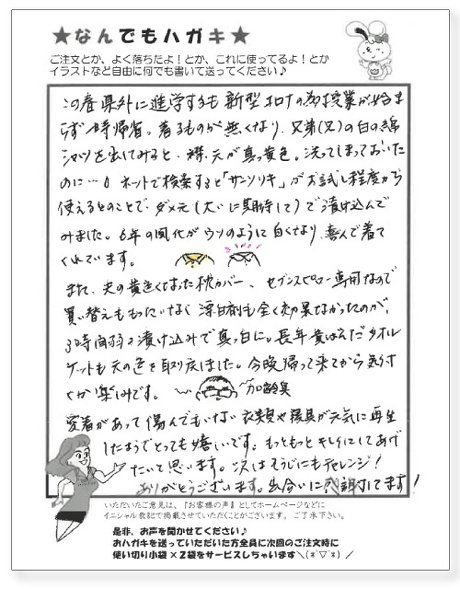 ★なんでもハガキ★
ご注文とか、よく落ちだよ！とか、これに使ってるよ！とか
イラストなど自由に何でも書いて送ってください♪
この春県外に進学するも新型コロナの為授業が始ま
らず1時帰省。着るものが無くなり、兄弟(兄)の白の綿
シャツを出してみると、襟元が真っ黄色。洗ってしまっておいた
のに…。ネットで検索すると「サンソリキ」がお試し程度から
使えるとのことで、ダメ元(大いに期待して)で漬け込んで
みました。6年の風化がウソのように白くなり、喜んで着て
くれています。
また、夫の黄色くなった枕カバー、セブンスピロー専用なので
買い替えももったいなく漂白剤も全く効果なかったのが、
3時間弱の漬け込みで真っ白に。長年黄ばんだタオル
ケットも元の色を取り戻しました。今晩帰って来てから気付
くか楽しみです。加齢臭
愛着があって傷んでもいない衣類や寝具が元気に再生
したようでとっても嬉しいです。もっともっとキレイにしてあげ
たいて思います。次はそうじにもチャレンジ！
ありがとうございます。出会いに感謝してます！
いただいたご意見は、『お客様の声』としてホームページなどに
イニシャル表記で掲載させていただくことがございます。ご了承下さい。
是非、お声を聞かせてください♪
おハガキを送っていただいた方全員に次回のご注文時に
使い切り小袋×2袋をサービスしちゃいます＼(ﾟ▽ﾟ)／